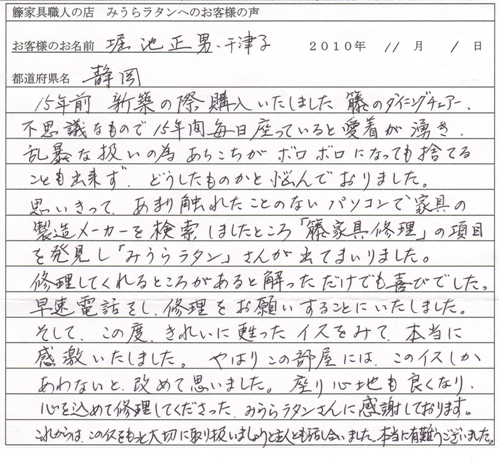 籐家具職人の店　みうらラタンへのお客様の声
お客様のお名前　堀池正男・千津子　2010年　11月　1日
都道府県名　静岡
15年前 新築の際購入いたしました 籐のダイニングチェアー、
不思議なもので15年間毎日座っていると愛着が湧き、
乱暴な扱いの為あちこちがボロボロになっても捨てる
ことも出来ず、どうしたものかと悩んでおりました。
思いきって、あまり触れたことのないパソコンで家具の
製造メーカーを検索しましたところ「籐家具修理」の項目
を発見し「みうらラタン」さんが出てまいりました。
修理してくれるところがあると解っただけでも喜びでした。
早速電話をし、修理をお願いすることにいたしました。
そして、この度、きれいに甦ったイスをみて、本当に
感激いたしました。やはりこの部屋には、このイスしか
あわないと、改めて思いました。座り心地も良くなり、
心を込めて修理してくださった、みうらラタンさんに感謝しております。
これからは、このイスをもっと大切に取り扱いましょうと主人とも話し合いました。本当に有難うございました。